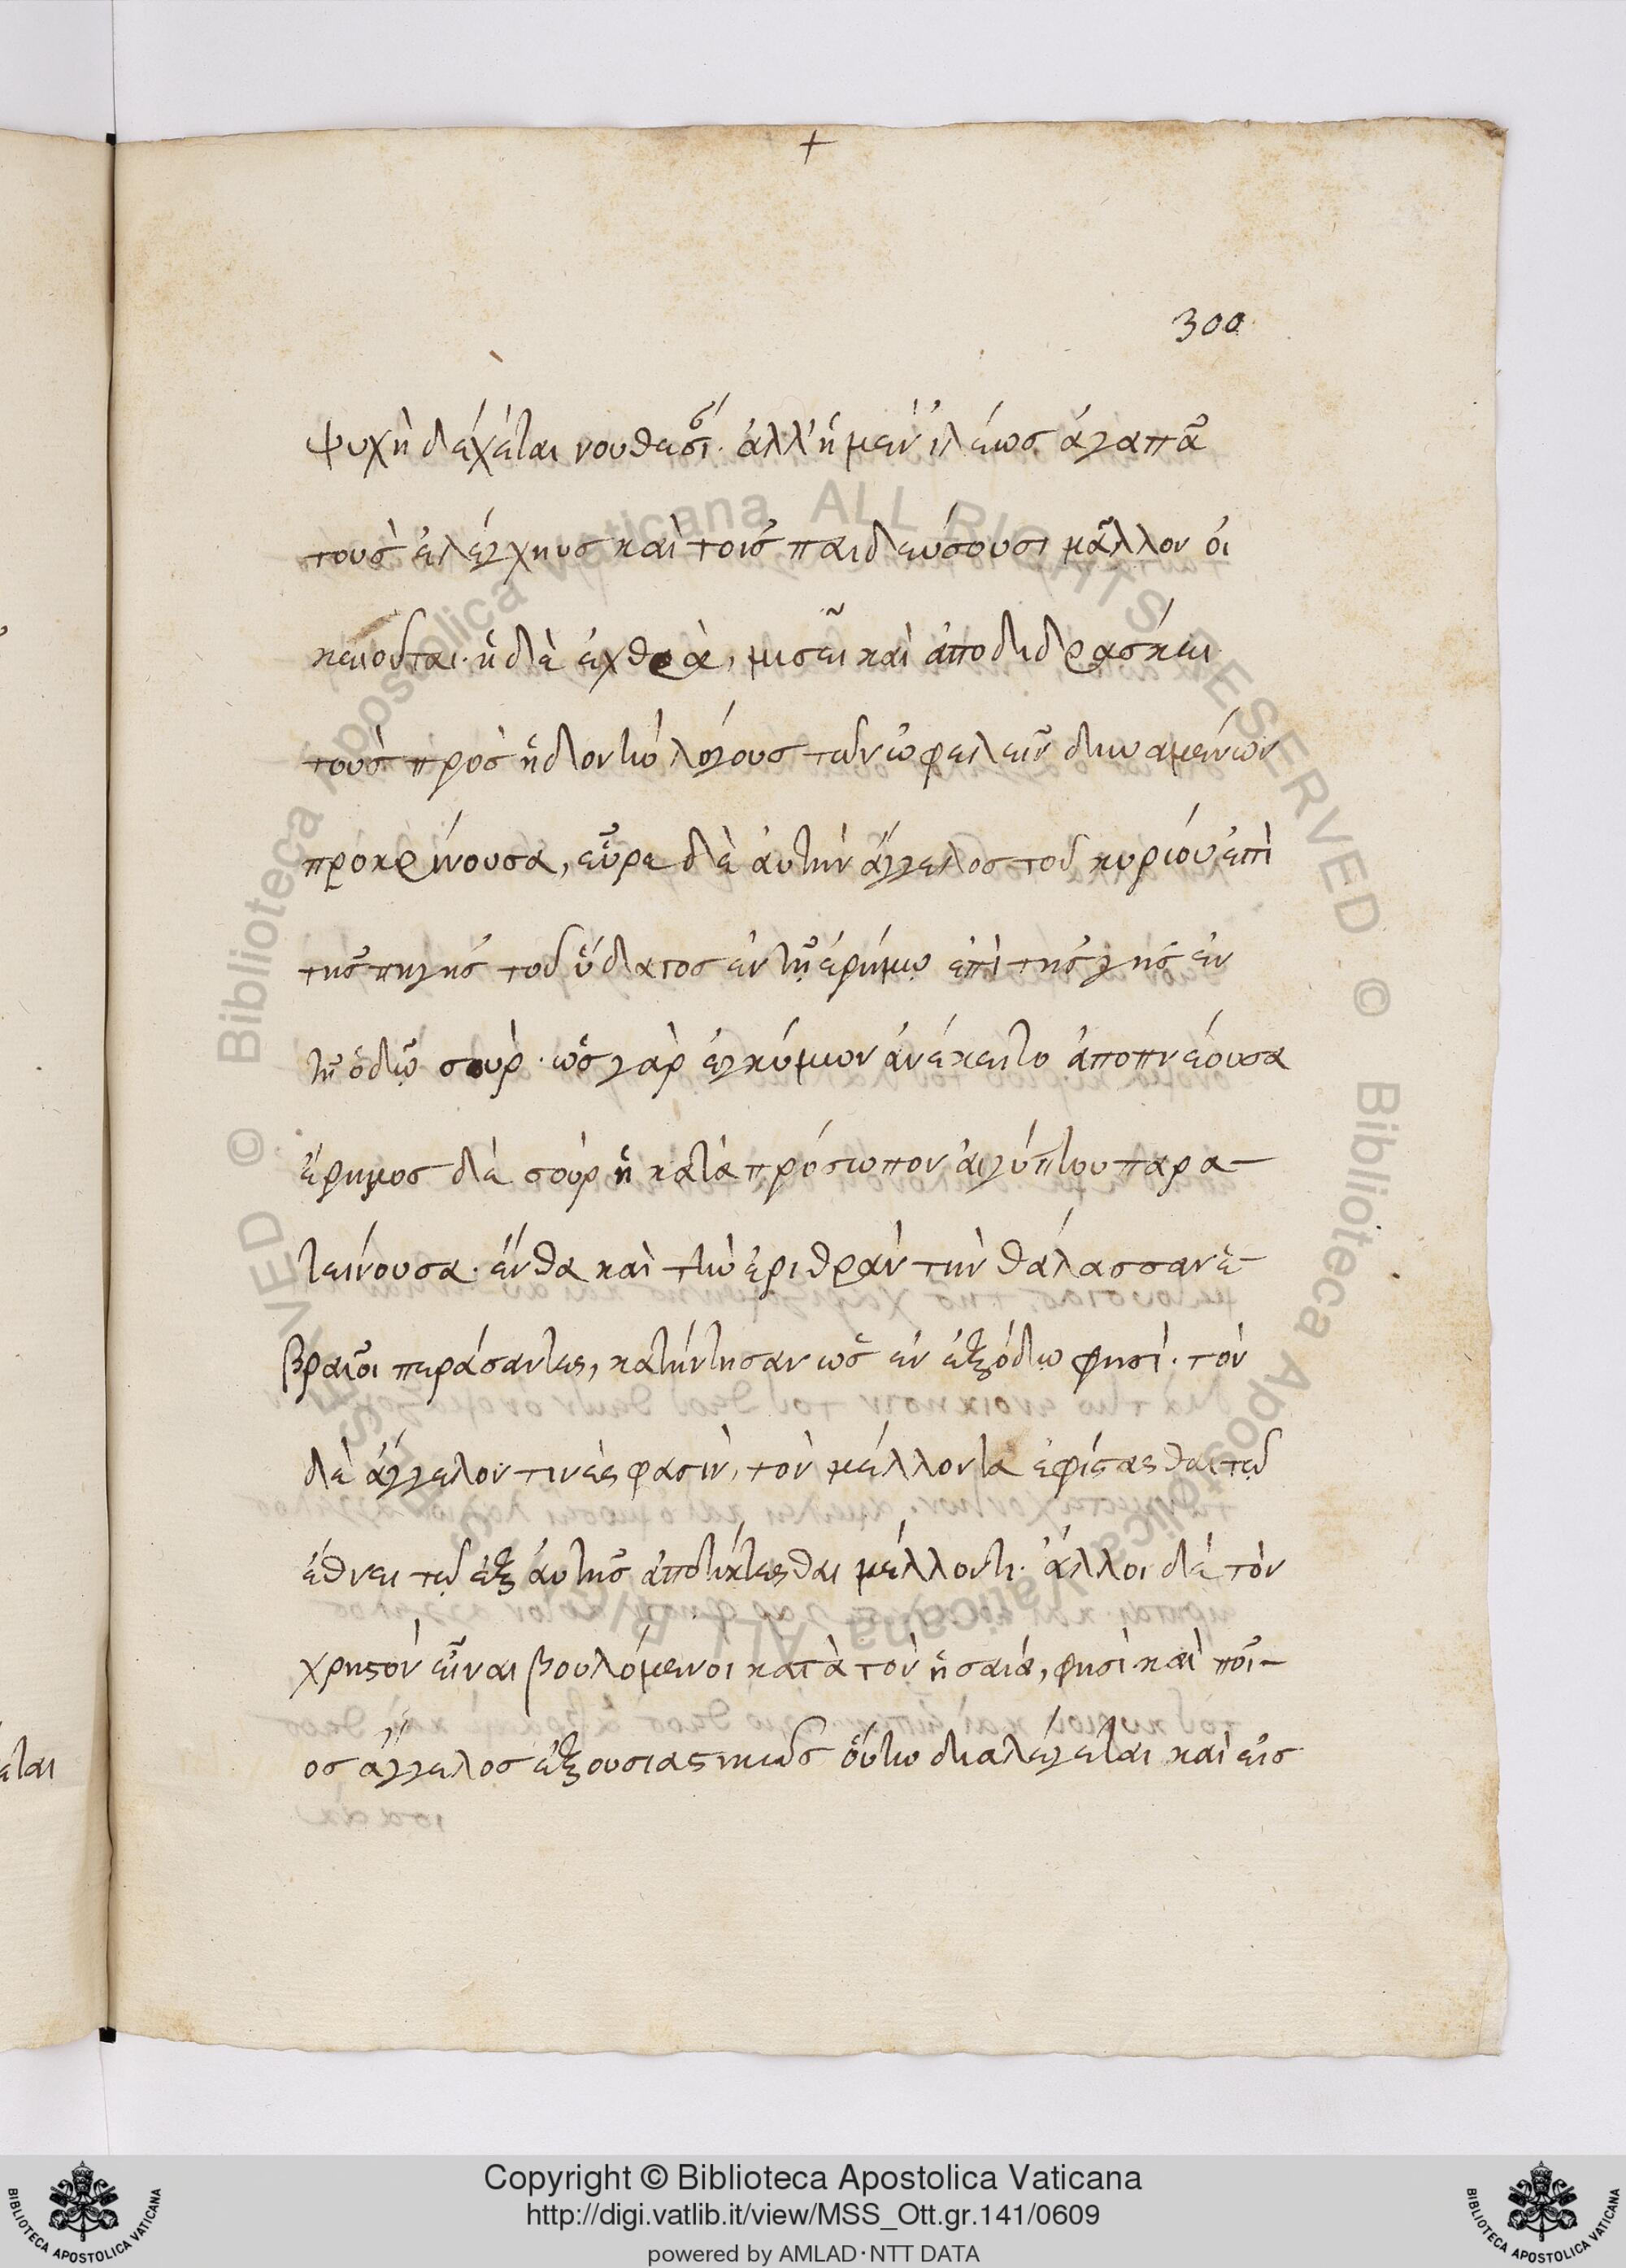 +
300
ψυχὴ δέχεται νουθεσί. ἀλλ' ἡ μὲν ἵλεως ἀγαπᾶ
τοὺς ἐλέγχους καὶ τοῖς παιδεύσουσι μᾶλλον οἰ
κειοῦται. ἡ δὲ ἐχθρὰ, μισεῖ καὶ ἀποδιδράσκει
τοὺς πρὸς ἡδονὴν λόγους τῶν ὠφελεῖν δυναμένων
προκρίνουσα, εὗρε δὲ αὐτὴν ἄγγελος τοῦ κυρίου ἐπὶ
τῆς πηγῆς τοῦ ὕδατος ἐν τῇ ἐρήμῳ ἐπὶ τῆς γῆς ἐν
τῇ ὁδῷ σούρ. ὡς γὰρ ἐγκύμων ἀνέκειτο ἀποπνέουσα
ἔρημος δὲ σοὺρ ἡ κατὰ πρόσωπον αἰγύπτου παρα-
τείνουσα. ἔνθα καὶ τὴν ἐριθρὰν τὴν θάλασσαν ἑ-
βραῖοι περάσαντες, κατήντησαν ὡς ἐν ἐξόδῳ φησί. τὸν
δὲ ἄγγελον τινές φασιν, τὸν μέλλοντα ἐφίστασθαι τῷ
ἔθνει τῷ ἐξ αὐτῆς ἀποτίκτεσθαι μέλλοντι. ἄλλοι δὲ τὸν
χριστὸν εἶναι βουλόμενοι κατὰ τὸν ἡσαΐα, φησὶ καὶ ποῖ-
ος ἄγγελος ἐξουσιαστικῶς οὕτω διαλέγεται καὶ εἰς
εται
Copyright © Biblioteca Apostolica Vaticana
http://digi.vatlib.it/view/MSS_Ott.gr.141/0609
powered by AMLAD·NTT DATA
BIBLIOTECA APOSTOLICA VATICANA
BIBLIOTECA APOSTOLICA VATICANA